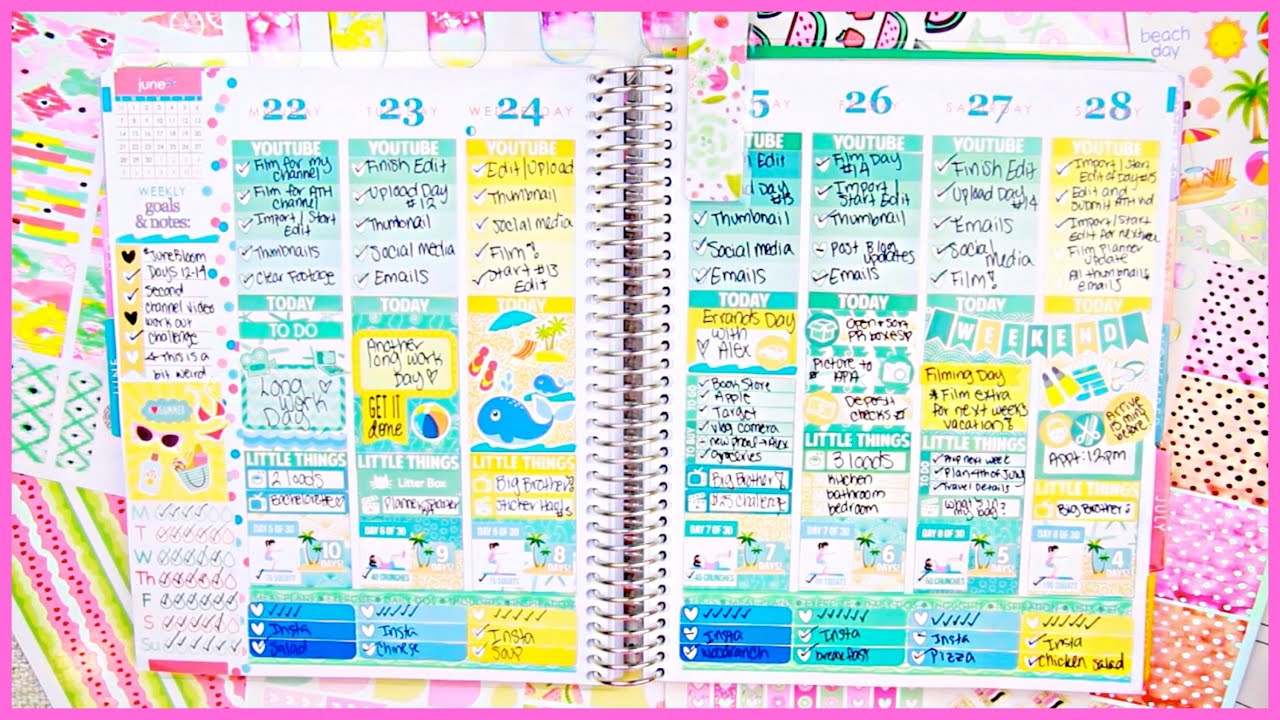 june
WEEKLY
goals
& notes:
#JuneBloom
Days 12-14
Second
channel videos
work out
challenge
this is a
bit weird
M
T
W
Th
F
S
Su
22
YOUTUBE
Film for my
channel
Film for ATH
channel
Import / Start
Edit
Thumbnails
Clear Footage
TODAY
TO DO
Long
Work
Day
LITTLE THINGS
2 loads
Bachelorette
DAY 5 OF 30
10
DAYS!
Insta
Salad
23
YOUTUBE
Finish Edit
Upload Day
#12
Thumbnail
Social Media
Emails
TODAY
Another
long work
Day
GET IT
done
LITTLE THINGS
Litter Box
DAY 6 OF 30
9
DAYS!
40 CRUNCHES
Insta
Chinese
24
YOUTUBE
Edit/Upload
Thumbnail
Social media
Film?
Start #13
Edit
TODAY
LITTLE THINGS
Big Brother?
Sticker Hauls
8
DAYS!
Insta
Soup
5
YOUTUBE
Edit
Day
#13
Thumbnail
Social media
Emails
TODAY
Errands Day
with
Alex
TO GO
Book Store
Apple
Target
TO BUY
vlog camera
groceries
LITTLE THINGS
Big Brother
$25 Challenge
DAY 7 OF 30
7
DAYS!
40 CRUNCHES
Insta
Woodranch
26
YOUTUBE
Film Day
#14
Import/
Start Edit
Thumbnail
Post Blog
updates
Emails
TODAY
Open & Sort
PR boxes
Picture to
Deposit
checks
LITTLE THINGS
3 loads
kitchen
bathroom
bedroom
6
DAYS!
Insta
breakfast
27
YOUTUBE
Finish Edit
Upload Day
#14
Emails
Social
Media
Film?
TODAY
WEEKEND
Filming Day
* Film extra
for next weeks
vacation?
LITTLE THINGS
TO DO
Prep next week
Plan 4th of July
Travel Details
What's in
my bag?
DAY 8 OF 30
5
DAYS!
50 CRUNCHES
Insta
Pizza
28
YOUTUBE
Import / Start
Edit of Day #15
Edit and
Submit ATH vid
Import/Start
Edit for next
Film Planner
Update
All thumbnails
emails
TODAY
Active
15 mins
before!
Appt: 12pm
LITTLE THINGS
Big Brother
4
DAYS!
Insta
chicken salad
beach
day
JULY